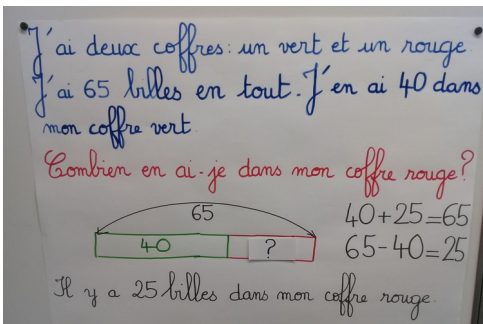 J'ai deux coffres : un vert et un rouge.
J'ai 65 billes en tout. J'en ai 40 dans
mon coffre vert.
Combien en ai-je dans mon coffre rouge?
65
40
?
40+25=65
65-40=25
Il y a 25 billes dans mon coffre rouge.